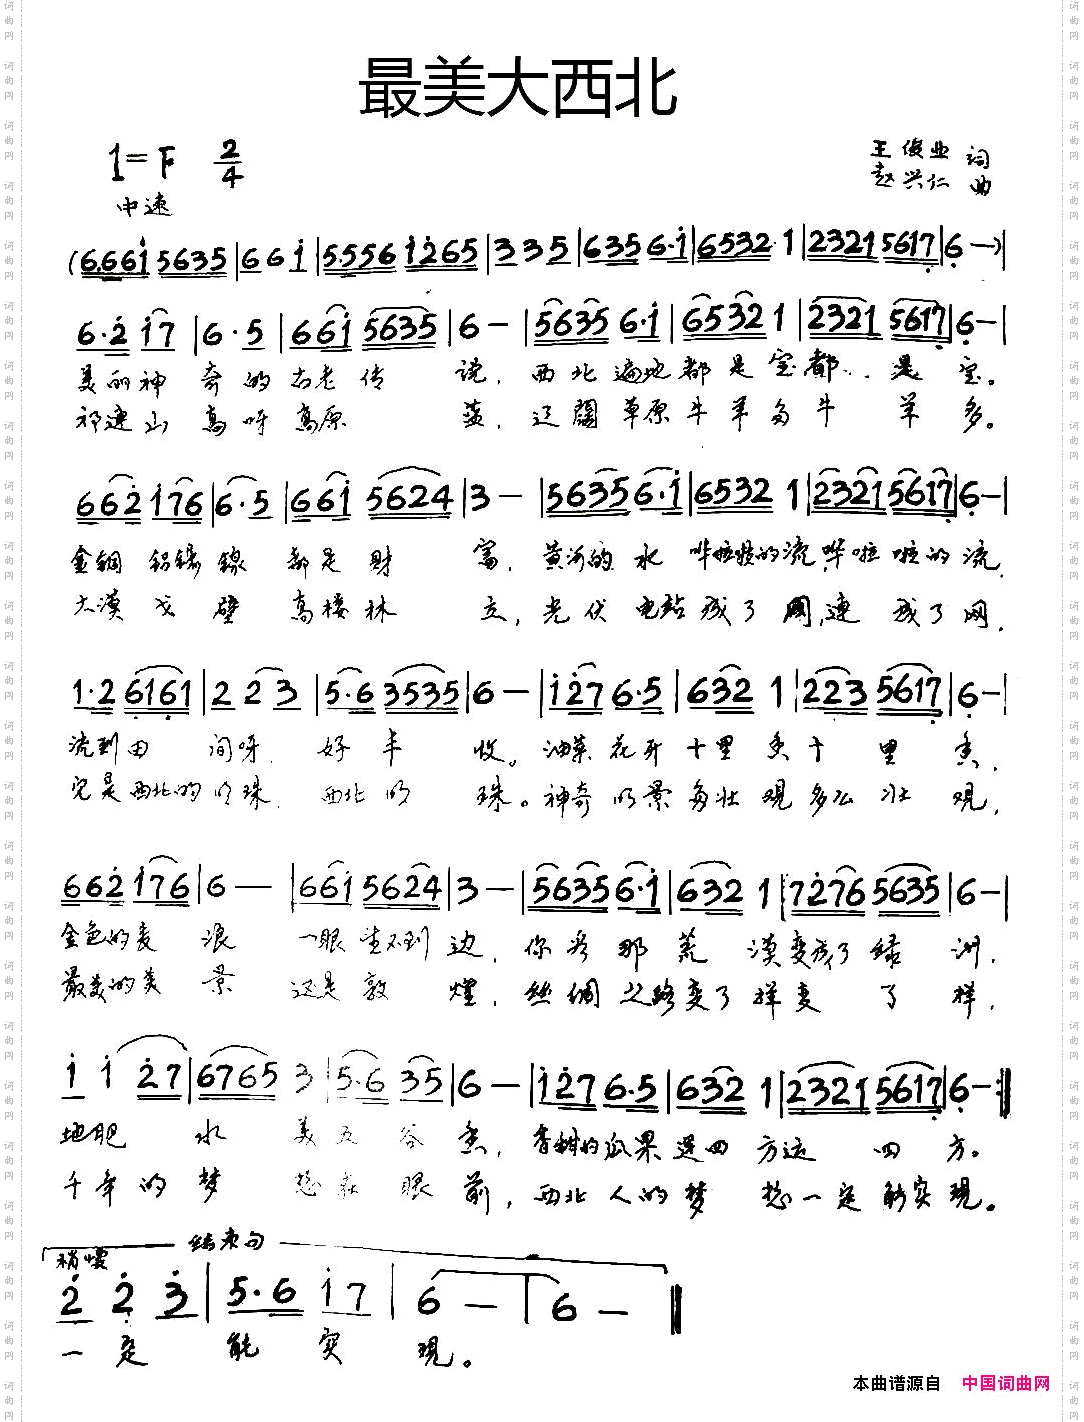 最美大西北
1=F 2/4
王俊业 词
赵兴仁 曲
中速
(6.661̇ 5635|661̇|5.556 1̇2̇65|335|635 6·1̇|6532 1|2321 5617̣|6̣—)|
6·2̇ 1̇7|6·5|661̇ 5635|6—|5635 6·1̇|6532 1|2321 5617̣|6̣—|
美丽神奇的古老传说，西北遍地都是宝都是宝。
祁连山高呀高原蓝，辽阔草原牛羊多牛羊多。
662̇ 1̇76|6·5|661̇ 5624|3—|5635 6·1̇|6532 1|2321 5617̣|6̣—|
金铜铝镍镍都是财富，黄河的水哗啦啦的流，哗啦啦的流，
大漠戈壁高楼林立，光伏电站成了网，连成了网，
1·2 6̣16̣1|2 23|5·6 3535|6—|1̇2̇7 6·5|632 1|223 5617̣|6̣—|
流到田间呀好丰收。油菜花开十里香十里香，
它是西北的明珠，西北的明珠。神奇的景多壮观多么壮观，
662̇ 1̇76|6—|661̇ 5624|3—|5635 6·1̇|632 1|72̇76 5635|6—|
金色的麦浪一眼望不到边，你看那荒漠变成了绿洲，
最美的美景还是敦煌，丝绸之路变了样变了样，
1̇ 1̇ 2̇7|6765 3|5·6 35|6—|1̇2̇7 6·5|632 1|2321 5617̣|6̣—:‖
地肥水美五谷香，香甜的瓜果运四方运四方。
千年的梦想在眼前，西北人的梦想一定能实现。
结束句
稍慢
2̇ 2̇ 3̇|5·6 1̇7|6—|6—‖
一定能实现。
本曲谱源自 中国词曲网